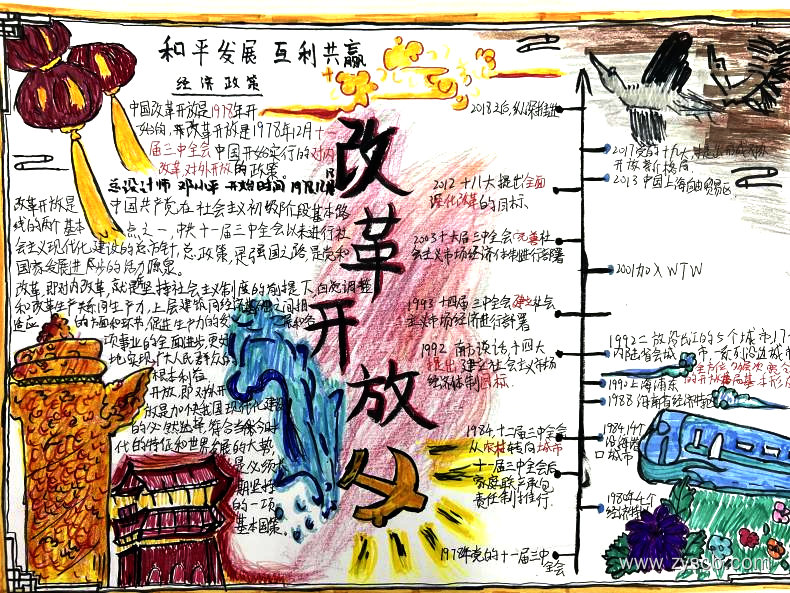 和平发展 互利共赢
经济政策
中国改革开放是1978年开
始的，改革开放是1978年12月十一
届三中全会中国开始实行的对内
改革对外开放的政策。
总设计师 邓小平 开始时间 1978年12月
改革开放是 中国共产党在社会主义初级阶段基本路
线的两个基本 点之一，中共十一届三中全会以来进行社
会主义现代化建设的总方针，总政策，是强国之路，是党和
国家发展进步的活力源泉。
改革，即对内改革，就是坚持社会主义制度的前提下，自觉调整
和改革生产关系同生产力，上层建筑同经济基础之间相
的方面和环节，促进生产力的发
项事业的全面进步，更好
地实现广大人民群众的
根本利益
开放，即对外开
放是加快我国现代化建设
的必然选择，符合当今时
代的特征和世界发展的大势，
是必须
期坚持
的一项
基本国策。
改革开放
2018之后，纵深推进
2012 十八大提出全面
深化改革的目标
2003 十六届三中全会完善社
会主义市场经济体制进行部署
1993 十四届三中全会建立社会
主义市场经济进行部署
1992 南方谈话，十四大
提出建立社会主义市场
经济体制目标
1984 十二届三中全会
从农村转向城市
十一届三中全会后
家庭联产承包
责任制推行
1978年党的十一届三中
全会
2017党的十九大
开放新格局
2013 中国上海自由贸易区
2001加入WTW
1992 二放沿江的5个城市，17个
内陆省会城市，一系列沿边城市
的开放格局基本形成
1990上海浦东
1988 海南省经济特区
1984,14个
沿海港
口城市
1980年4个
经济特区
www.zyscb.com